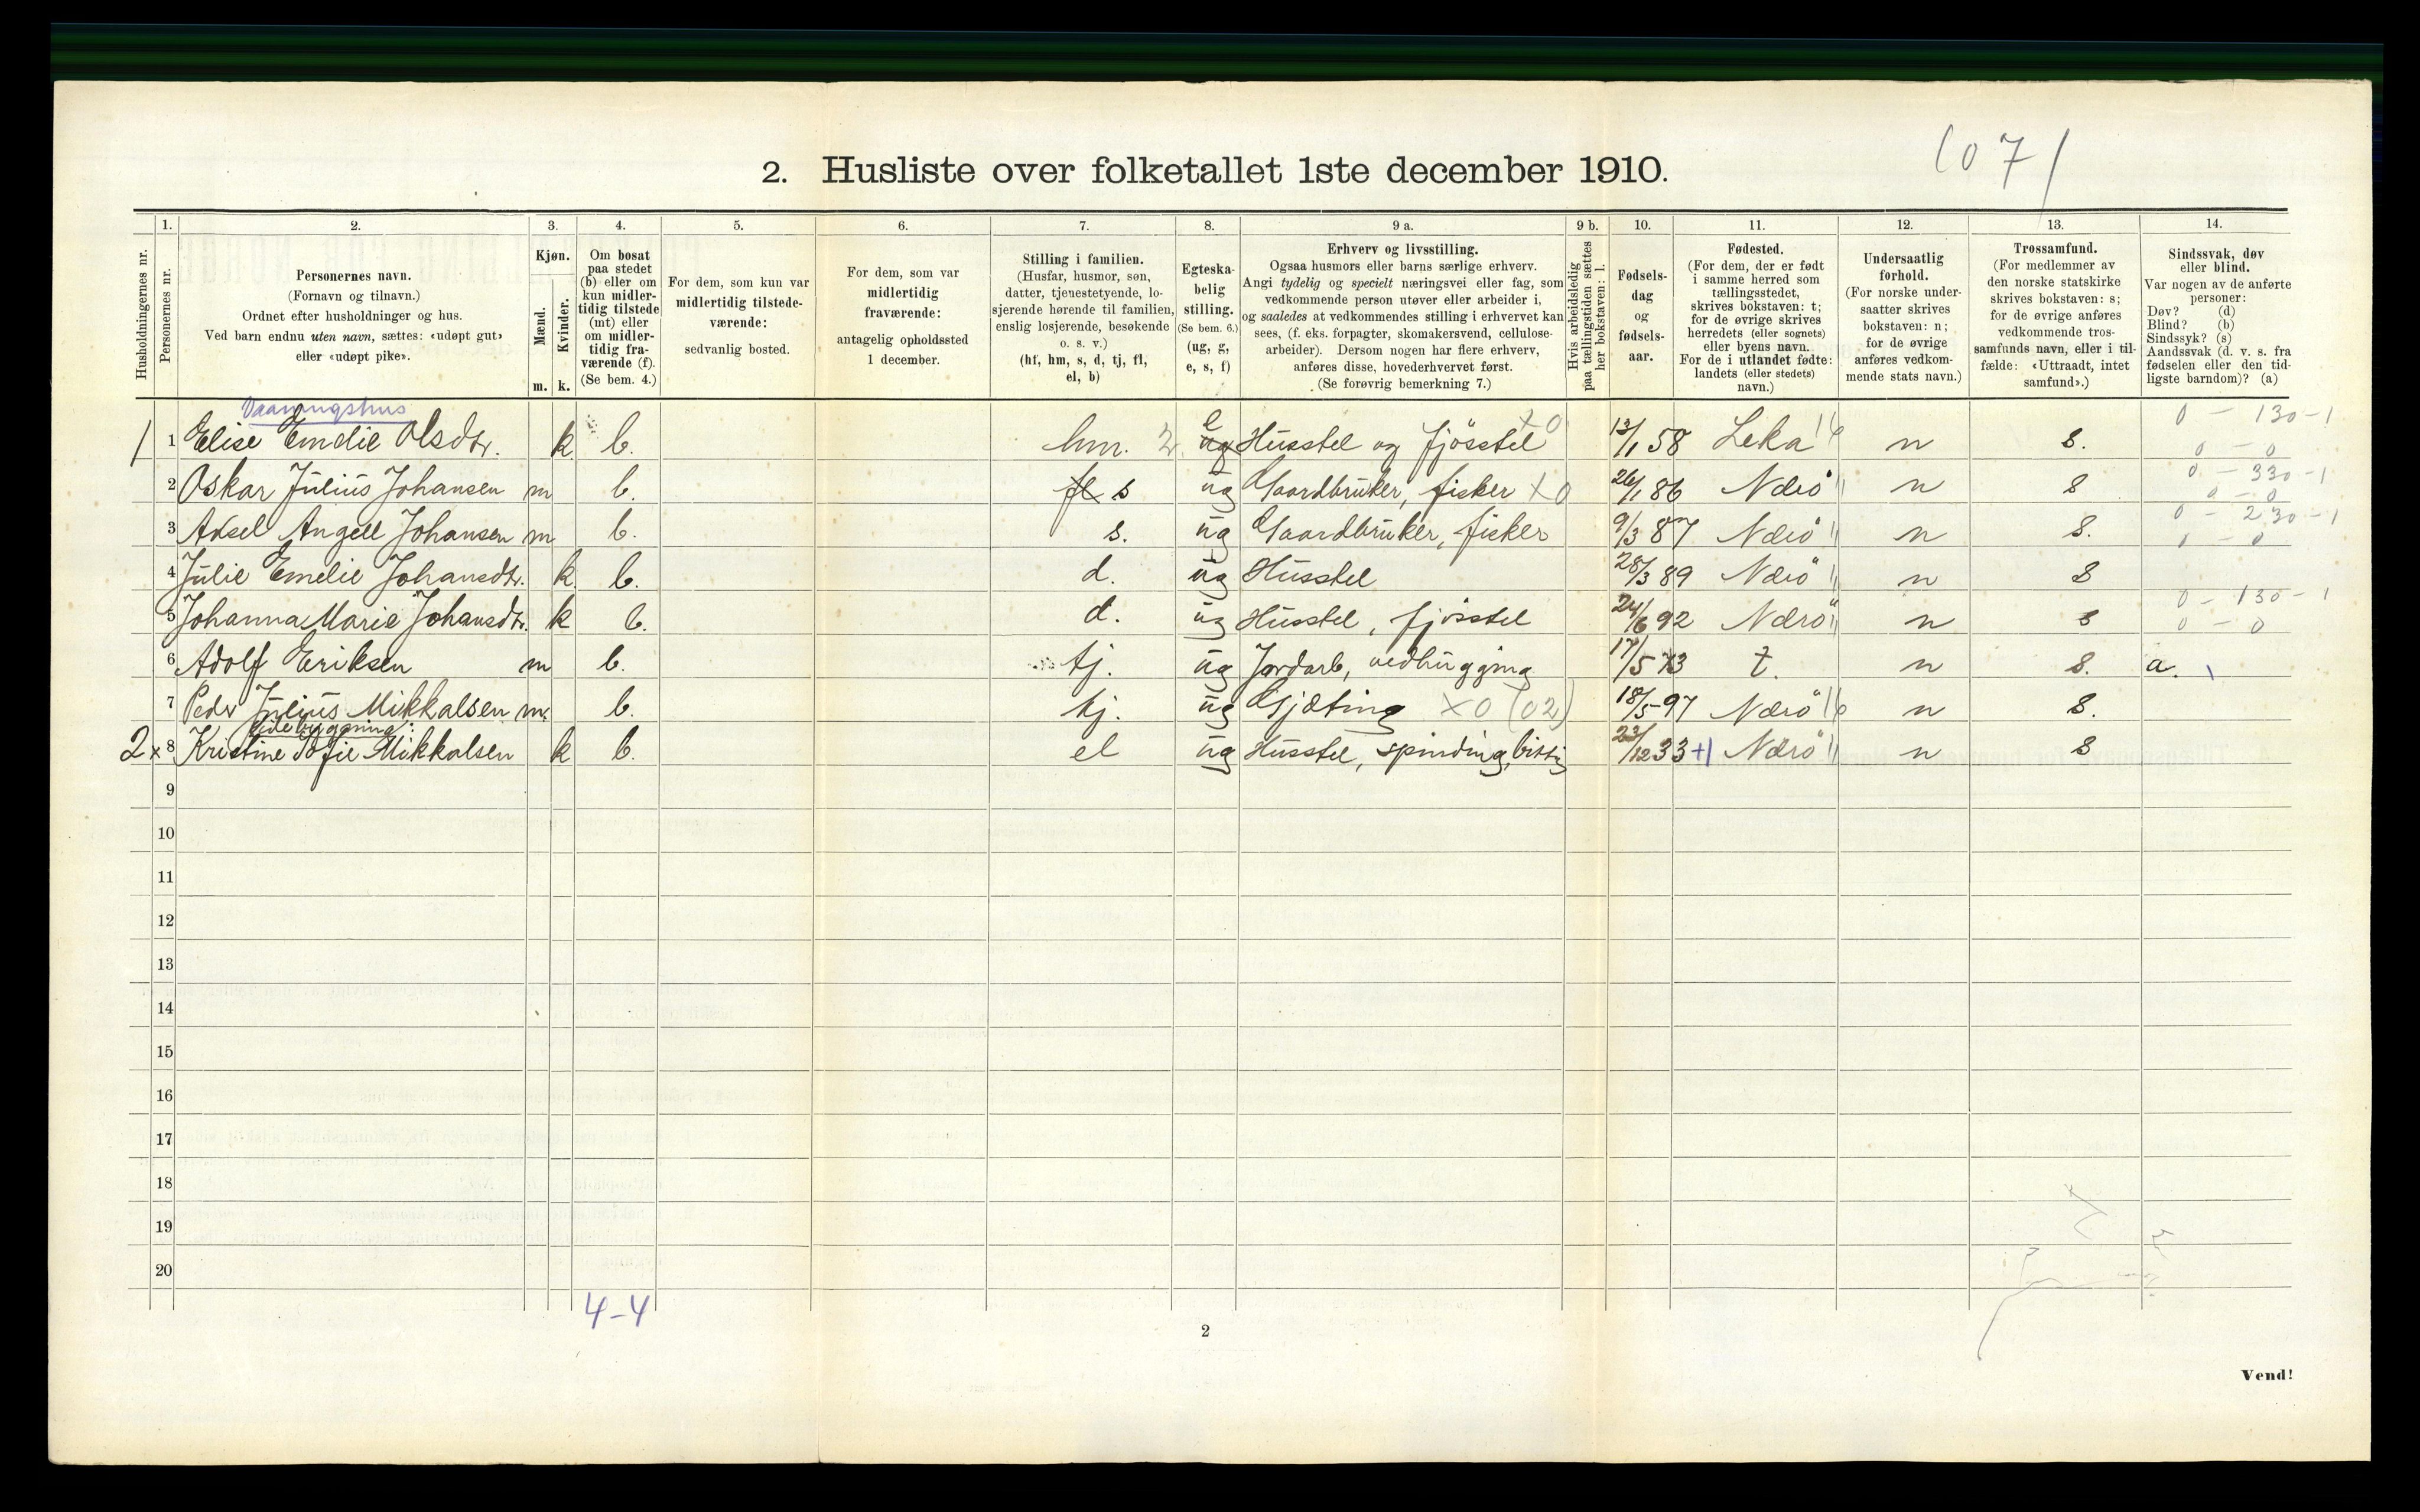 (07/
2. Husliste over folketallet 1ste december 1910.
Husholdningernes nr.
1. Personernes nr.
2. Personernes navn.
(Fornavn og tilnavn.)
Ordnet efter husholdninger og hus.
Ved barn endnu uten navn, sættes: «udøpt gut»
eller «udøpt pike».
3. Kjøn.
Mænd. m.
Kvinder. k.
4. Om bosat
paa stedet
(b) eller om
kun midler-
tidig tilstede
(mt) eller
om midler-
tidig fra-
værende (f).
(Se bem. 4.)
5. For dem, som kun var
midlertidig tilstede-
værende:
sedvanlig bosted.
6. For dem, som var
midlertidig
fraværende:
antagelig opholdssted
1 december.
7. Stilling i familien.
(Husfar, husmor, søn,
datter, tjenestetyende, lo-
sjerende hørende til familien,
enslig losjerende, besøkende
o. s. v.)
(hf, hm, s, d, tj, fl,
el, b)
8. Egteska-
belig
stilling.
(Se bem. 6.)
(ug, g,
e, s, f)
9 a. Erhverv og livsstilling.
Ogsaa husmors eller barns særlige erhverv.
Angi tydelig og specielt næringsvei eller fag, som
vedkommende person utøver eller arbeider i,
og saaledes at vedkommendes stilling i erhvervet kan
sees, (f. eks. forpagter, skomakersvend, cellulose-
arbeider). Dersom nogen har flere erhverv,
anføres disse, hovederhvervet først.
(Se forøvrig bemerkning 7.)
9 b. Hvis arbeidsledig
paa tællingstiden sættes
her bokstaven: l.
10. Fødsels-
dag
og
fødsels-
aar.
11. Fødested.
(For dem, der er født
i samme herred som
tællingsstedet,
skrives bokstaven: t;
for de øvrige skrives
herredets (eller sognets)
eller byens navn.
For de i utlandet fødte:
landets (eller stedets)
navn.)
12. Undersaatlig
forhold.
(For norske under-
saatter skrives
bokstaven: n;
for de øvrige
anføres vedkom-
mende stats navn.)
13. Trossamfund.
(For medlemmer av
den norske statskirke
skrives bokstaven: s;
for de øvrige anføres
vedkommende tros-
samfunds navn, eller i til-
fælde: «Uttraadt, intet
samfund».)
14. Sindssvak, døv
eller blind.
Var nogen av de anførte
personer:
Døv? (d)
Blind? (b)
Sindssyk? (s)
Aandssvak (d. v. s. fra
fødselen eller den tid-
ligste barndom)? (a)
Vaaningshus
0 - 130-1
1 1 Elise Emelie Olsdtr. k b. hm. 2 ug e Husstel og fjösstel X0 13/1 58 Leka n s. 0 - 0
0 - 330-1
2 Oskar Julius Johansen m b. fl s ug Gaardbruker, fisker X0 26/1 86 Nærö n s 0 - 0
0 - 230-1
3 Aksel Angell Johansen m b. s. ug Gaardbruker, fisker 9/3 87 Nærö n s. 1 - 0
4 Julie Emelie Johansdtr. k b. d. ug Husstel 28/3 89 Nærö n s
0 - 130-1
5 Johanna Marie Johansdtr. k b. d. ug Husstel, fjösstel 24/6 92 Nærö n s 0 - 0
6 Adolf Eriksen m b. tj. ug Jordarb, vedhugging 17/5 73 t. n s. a.
7 Peder Julius Mikkalsen m. b. tj. ug Gjæting X0 (02) 18/5 97 Nærö n s.
Sidebygning:
2 x 8 Kristine Sofie Mikkalsen k b. el ug Husstel, spinding, 23/12 33 +1 Nærö n s
9
10
11
12
13
14
15
16
17
18
19
20
4-4
2
Vend!